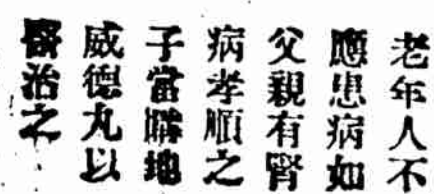 老年人不
應患病如
父親有腎
病孝順之
子當購地
威德丸以
醫治之